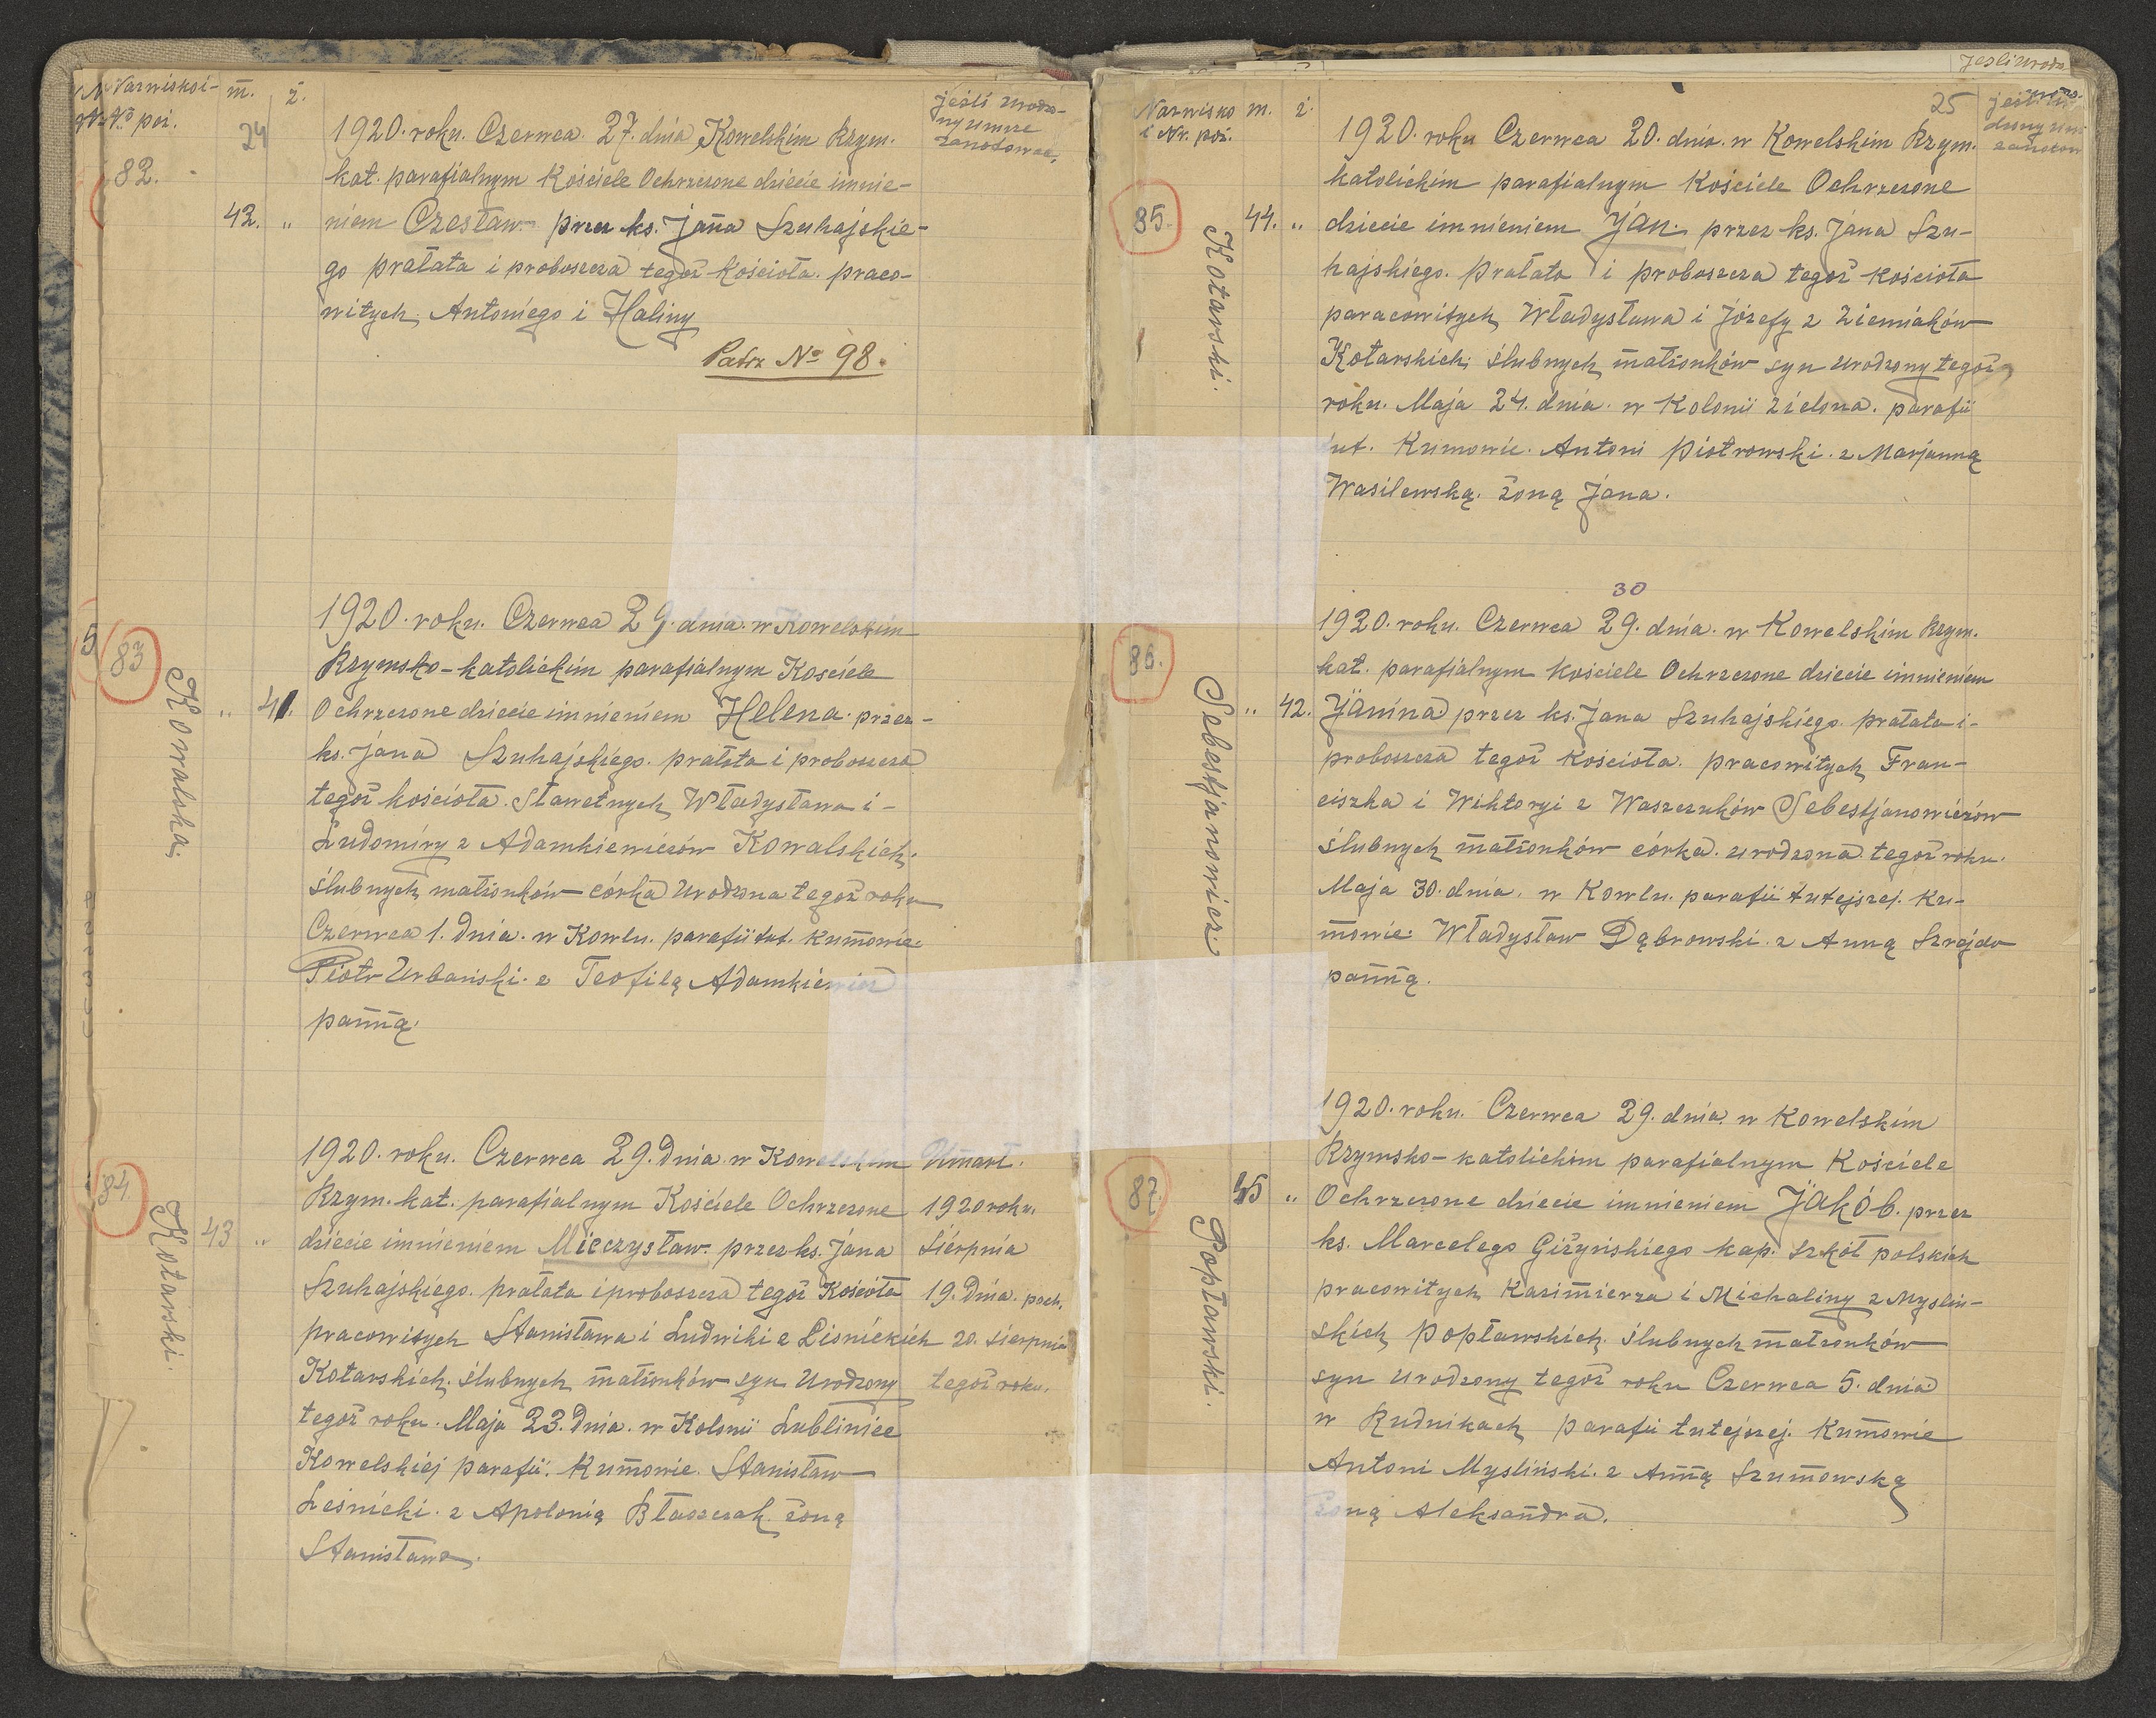 Nazwisko i m. ż.
No poż.
24
jeśli urodzo-
ny umrze
zanotować.
82.
1920. roku. Czerwca. 27. dnia Kowelskim Rzym.
kat. parafialnym Kościele Ochrzczone dziecie imnie-
42. „ niem Czesław przez ks. Jana Szuhajskie-
go prałata i proboszcza tegoż Kościoła. praco-
witych Antoniego i Haliny
Patrz No 98.
5
83
Kowalska.
1920. roku. Czerwca 29. dnia. w Kowelskim
Rzymsko-katolickim parafialnym Kościele
„ 41. Ochrzczone dziecie imnieniem Helena. przez-
ks. Jana Szuhajskiego. prałata i proboszcza
tegoż kościoła. Sławetnych Władysława i-
Ludomiry z Adamkiewiczów Kowalskich.
ślubnych małżonków córka urodzona tegoż roku
Czerwca 1. dnia. w Kowlu. parafii tut. Kumowie.
Piotr Urbański. z Teofilą Adamkiewicz
panną.
84
Kotarski.
1920. roku. Czerwca 29. Dnia. w Kowelskim
Rzym. kat. parafialnym Kościele Ochrzczone
43 „ dziecie imnieniem Mieczysław. przez ks. Jana
Szuhajskiego. prałata i proboszcza tegoż Kościoła
pracowitych Stanisława i Ludwiki z Lisnickich
Kotarskich. ślubnych małżonków syn Urodzony
tegoż roku. Maja 23. Dnia. w Kolonii Lubliniec
Kowelskiej parafii. Kumowie. Stanisław
Leśnicki. z Apolonią Błaszczak żoną
Stanisława.
Umarł.
1920 roku.
Sierpnia
19. Dnia. poch.
20. Sierpnia
tegoż roku.
Jeśli urodz
Nazwisko m. ż.
i Nr. poż.
25
85.
Kotarski.
1920. roku Czerwca 20. dnia. w Kowelskim Rzym.
katolickim parafialnym Kościele Ochrzczone
44. „ dziecie imnieniem Jan. przez ks. Jana Szu-
hajskiego. Prałata i proboszcza tegoż kościoła
paracowitych Władysława i Józefy z Ziemiaków
Kotarskich. ślubnych małżonków syn urodzony tegoż
roku. Maja 24. dnia. w Kolonii Zielona. parafii
tut. Kumowie. Antoni Piotrowski. z Marjanną
Wasilewską. żoną Jana.
30
86.
Sebestjanowicz
1920. roku. Czerwca 29. dnia. w Kowelskim Rzym.
kat. parafialnym Kościele Ochrzczone dziecie imnieniem
„ 42. Janina przez ks. Jana Szuhajskiego. prałata i-
proboszcza tegoż Kościoła. pracowitych Fran-
ciszka i Wiktoryi z Waszczuków Sebestjanowiczów
ślubnych małżonków córka. urodzona tegoż roku.
Maja 30. dnia. w Kowlu. parafii tutejszej. Ku-
mowie. Władysław Dąbrowski. z Anną Szrajdo
panną.
87.
Popławski.
1920. roku. Czerwca 29. dnia. w Kowelskim
Rzymsko-katolickim parafialnym Kościele
45 „ Ochrzczone dziecie imnieniem Jakób. przez
ks. Marcelego Giżyńskiego kap. szkół polskich
pracowitych Kazimierza i Michaliny z Myślin-
skich Popławskich ślubnych małżonków
syn urodzony tegoż roku Czerwca 5. dnia
w Rudnikach parafii tutejszej. Kumowie
Antoni Myśliński. z Anną Szumowską
żoną Aleksandra.